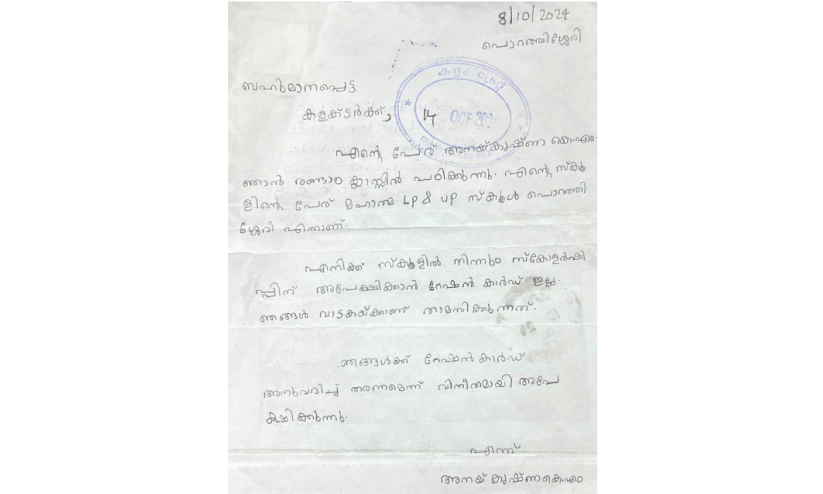 8/10/2024
പൊറത്തിശ്ശേരി
ബഹുമാനപ്പെട്ട
കളക്ടർക്ക്,
14 OCT 20
എന്റെ പേര് അനയ്കൃഷ്ണ കെ.എം.
ഞാൻ രണ്ടാം ക്ലാസ്സിൽ പഠിക്കുന്നു. എന്റെ സ്കൂ
ളിന്റെ പേര് മഹാത്മ LP & UP സ്കൂൾ പൊറത്തി
ശ്ശേരി എന്നാണ്.
എനിക്ക് സ്കൂളിൽ നിന്നും സ്കോളർഷി
പ്പിന് അപേക്ഷിക്കാൻ റേഷൻ കാർഡ് ഇല്ല.
ഞങ്ങൾ വാടകയ്ക്കാണ് താമസിക്കുന്നത്.
ഞങ്ങൾക്ക് റേഷൻകാർഡ്
അനുവദിച്ച് തരണമെന്ന് വിനീതമായി അപേ
ക്ഷിക്കുന്നു.
എന്ന്
അനയ് കൃഷ്ണകെഎം